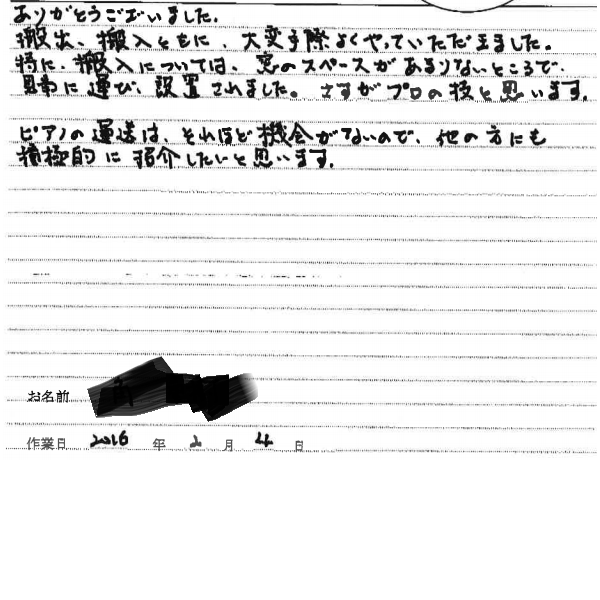 ありがとうございました。
搬出、搬入ともに、大変手際よくやっていただきました。
特に、搬入については、窓のスペースがあまりないところで、
見事に運び、設置されました。さすがプロの技と思います。
ピアノの運送は、それほど機会がないので、他の方にも
積極的に紹介したいと思います。
お名前
作業日 2016 年 2 月 4 日